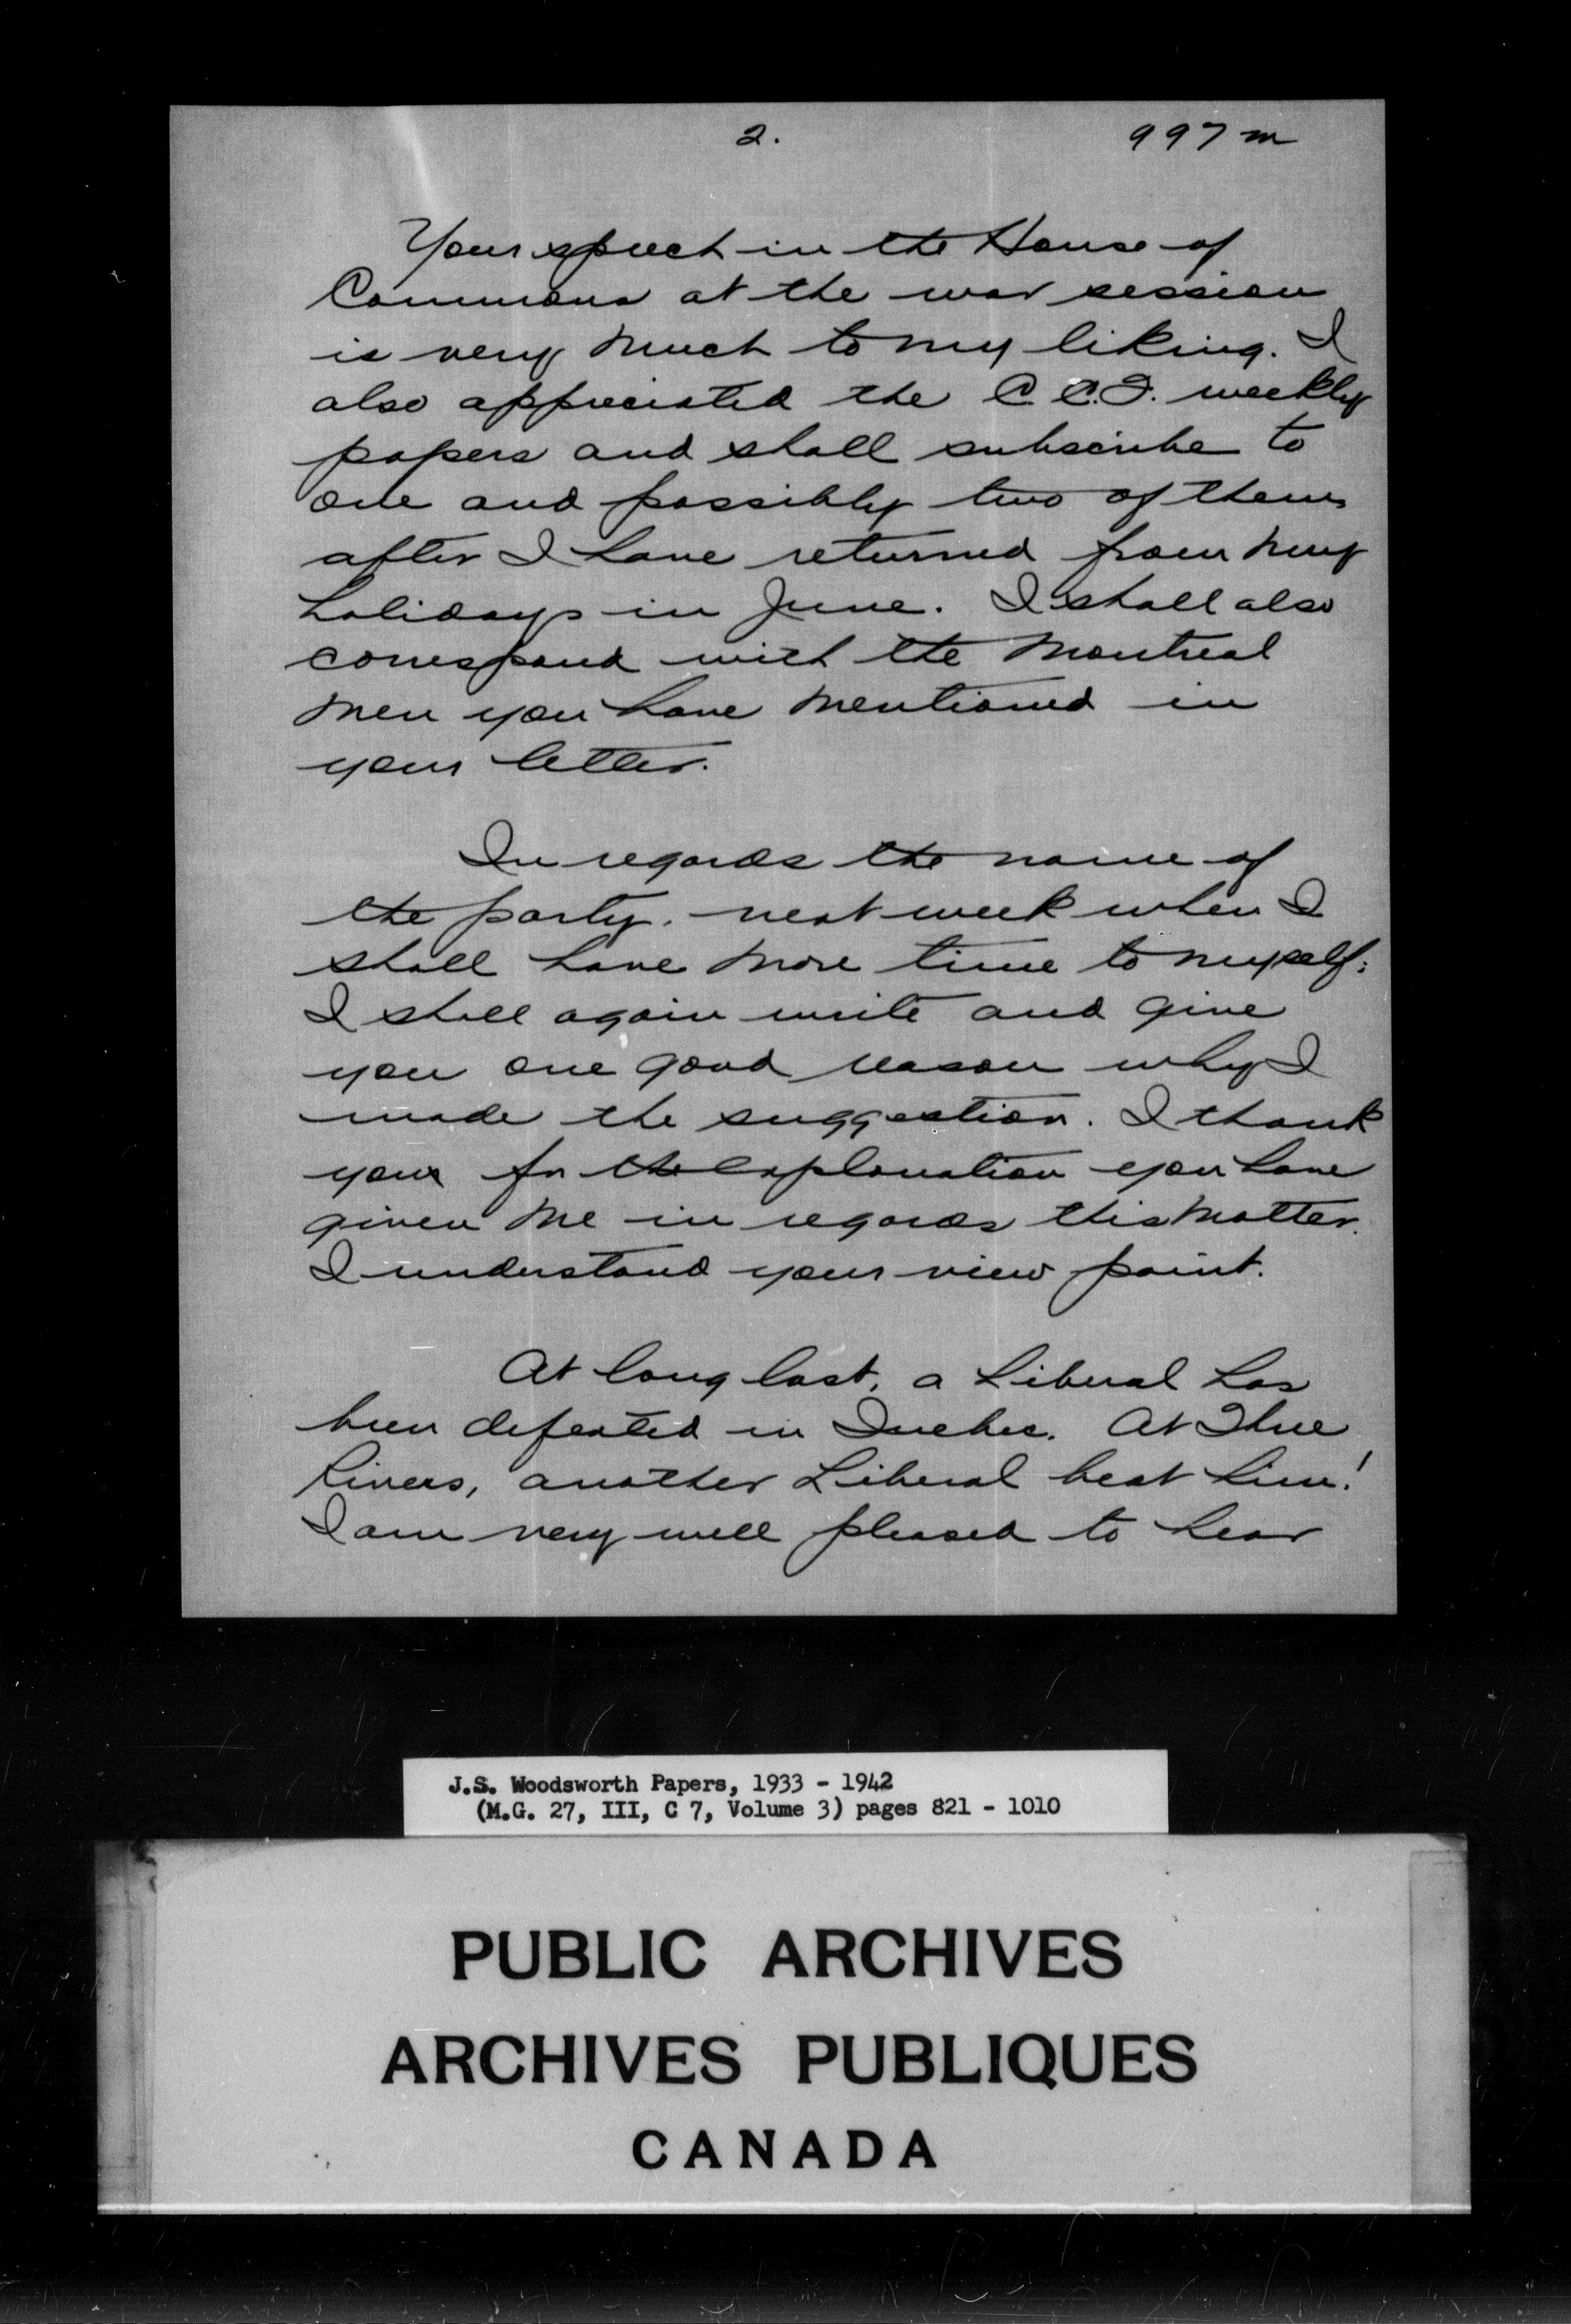 2.
997 m
Your speech in the House of
Commons at the war session
is very much to my liking. I
also appreciated the C.C.F. weekly
papers and shall subscribe to
one and possibly two of them
after I have returned from my
holidays in June. I shall also
correspond with the Montreal
men you have mentioned in
your letter.
In regards the name of
the party, next week when I
shall have more time to myself;
I shall again write and give
you one good reason why I
made the suggestion. I thank
you for the explanation you have
given me in regards this matter.
I understand your view point.
At long last, a Liberal has
been defeated in Quebec. At Three
Rivers, another Liberal beat him!
I am very well pleased to hear
J.S. Woodsworth Papers, 1933 - 1942
(M.G. 27, III, C 7, Volume 3) pages 821 - 1010
PUBLIC ARCHIVES
ARCHIVES PUBLIQUES
CANADA